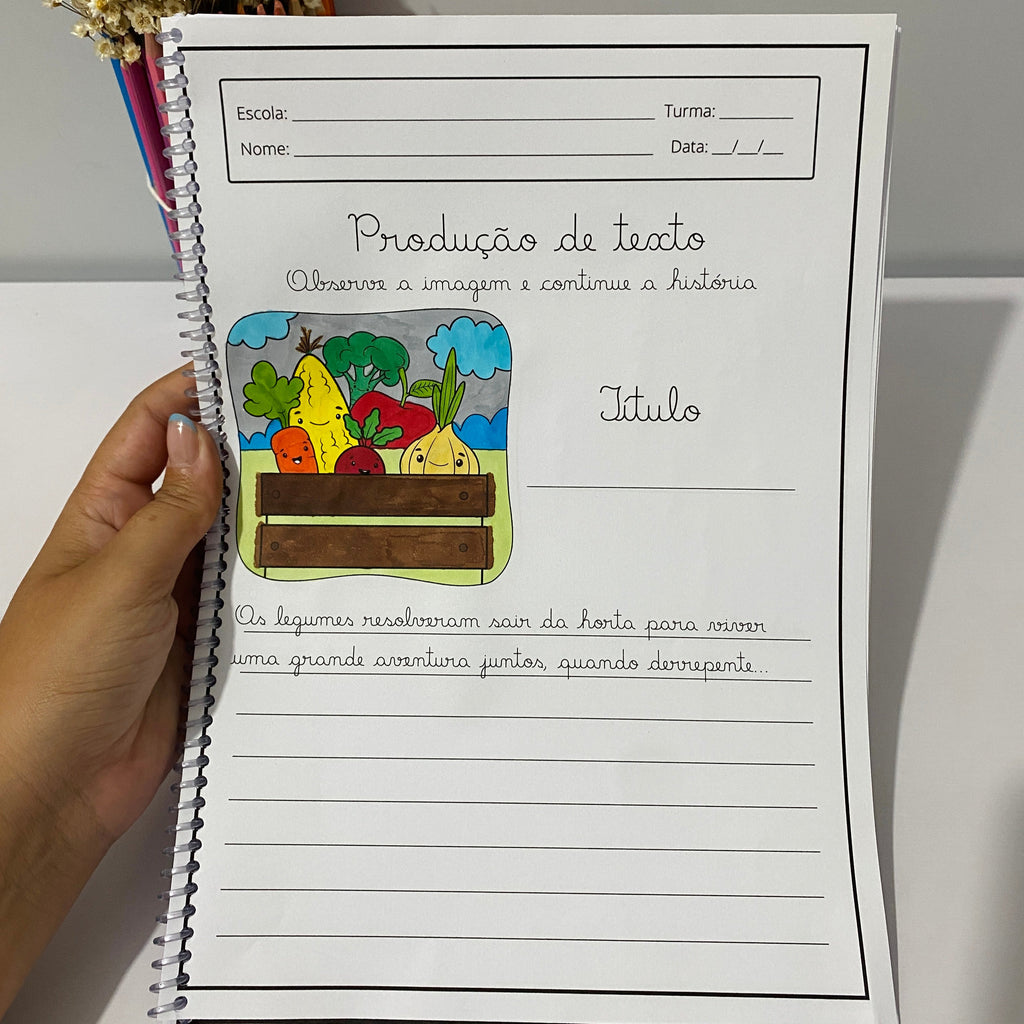 Escola: ____________ Turma: ________
Nome: ____________ Data: __/__/__
Produção de texto
Observe a imagem e continue a história
Título
As legumes resolveram sair da horta para viver
uma grande aventura juntos, quando derrepente...